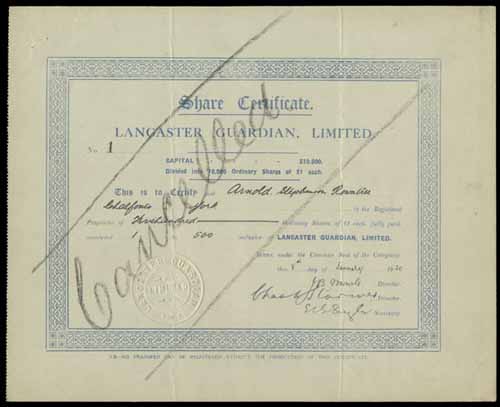 Share Certificate.
LANCASTER GUARDIAN, LIMITED.
No 1
CAPITAL - - - £10,000.
Divided into 10,000 Ordinary Shares of £1 each.
This is to Certify Arnold Stephenson Rowntree
Chalfonts York is the Registered
Proprietor of five hundred Ordinary Shares of £1 each, fully paid,
numbered 1 to 500 inclusive of LANCASTER GUARDIAN, LIMITED.
Given under the Common Seal of the Company
this day of January 1920
Director
Director
Secretary
Cancelled
NO TRANSFER CAN BE REGISTERED WITHOUT THE PRODUCTION OF THIS CERTIFICATE.